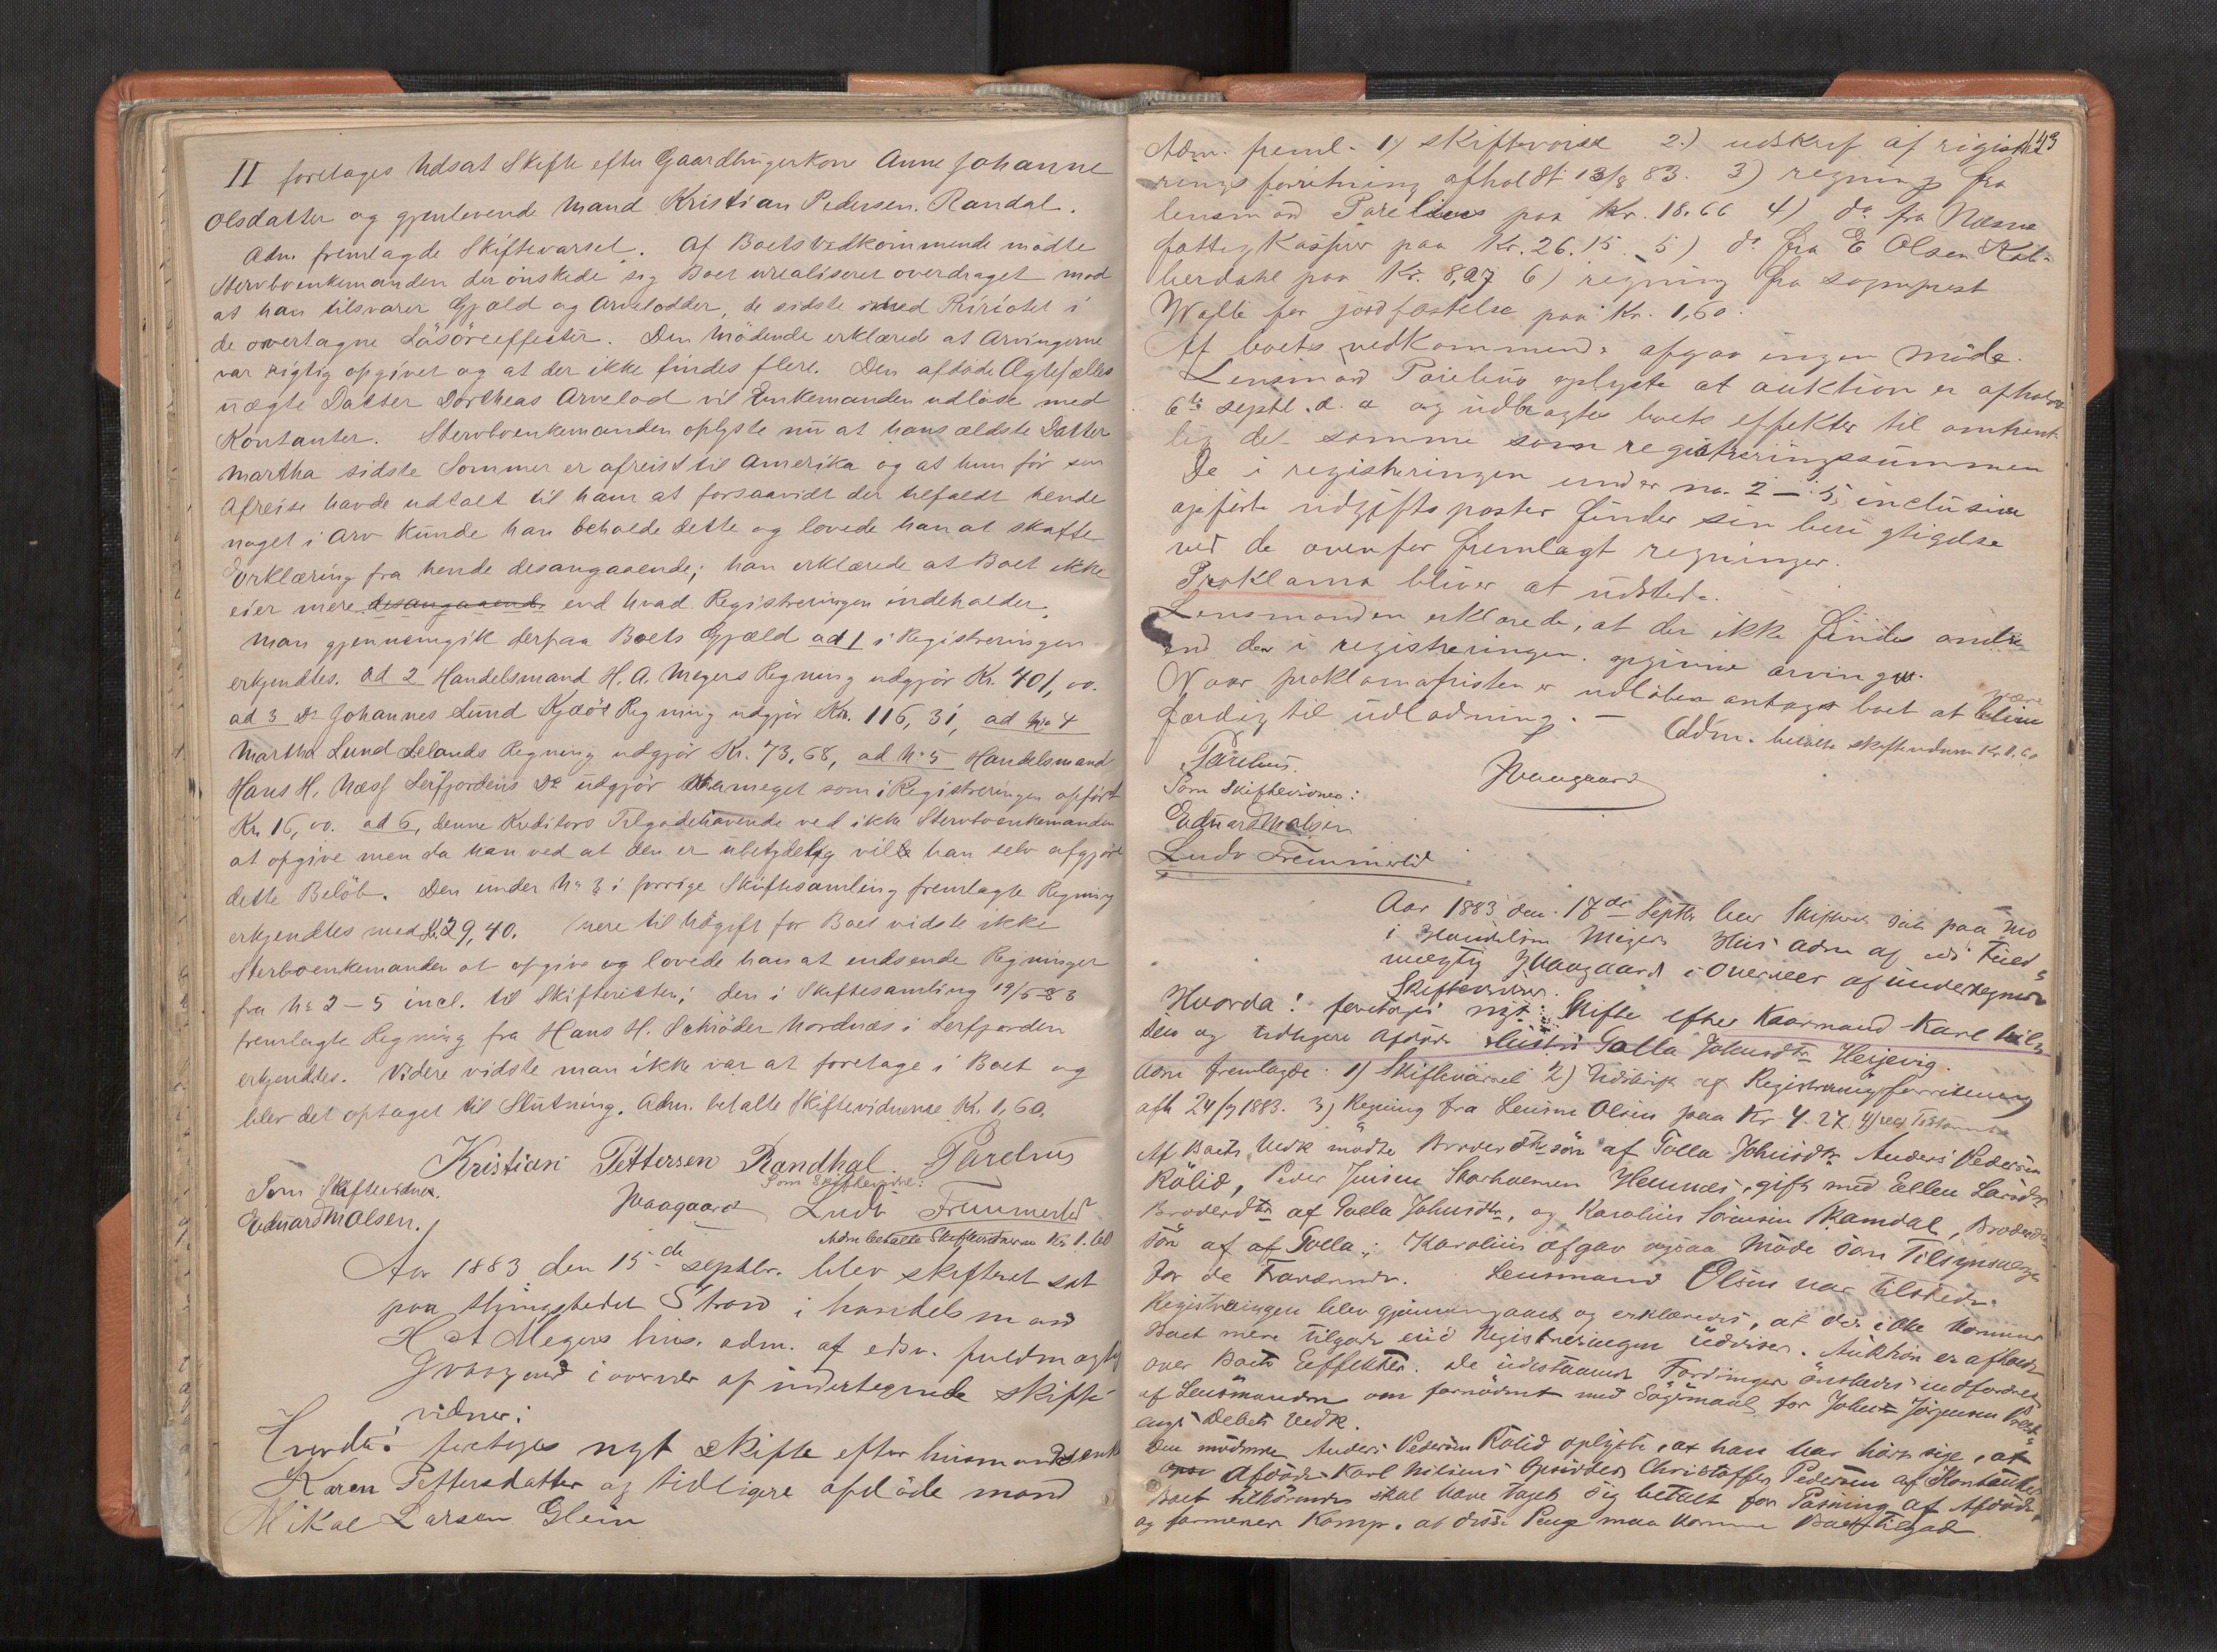 II foretages Udsat Skifte efter Gaardbrugerkone Anne Johanne
Olsdatter og gjenlevende Mand Kristian Pedersen Randal.
Adm. fremlagde Skiftevarsel. Af Boets Vedkommende mødte
Stervboenkemanden der ønskede sig Boet urealiseret overdraget mod
at han tilsvarer Gjæld og Arvelodder, de sidste med Prioritet i
de overtagne Løsøreeffecter. Den Mødende erklærede at Arvingerne
var rigtig opgivet og at der ikke findes flere. Den afdøde Ægtefælles
uægte Datter Dortheas Arvelod vil Enkemanden udløse med
Kontanter. Stervboenkemanden oplyste nu at hans ældste Datter
Martha sidste Sommer er afreist til Amerika og at hun før sin
Afreise havde udtalt til ham at forsaavidt der tilfaldt hende
noget i Arv kunde han beholde dette og lovede han at skaffe
Erklæring fra hende desangaaende; han erklærede at Boet ikke
eier mere desangaaende end hvad Registreringen indeholder.
Man gjennemgik derpaa Boets Gjæld ad 1 i Registreringen
erkjendtes. ad 2 Handelsmand H. A. Meyers Regning udgjør Kr. 401,00.
ad 3 Do Johannes Lund Regning udgjør Kr. 116,31, ad No 4
Martha Lund Lelands Regning udgjør Kr. 73,68, ad No 5 Handelsmand
Hans H. Næss Serfjordens Do udgjør saameget som i Registreringen opført
Kr. 16,00. ad 6, denne Kreditors Tilgodehavende ved ikke Stervboenkemanden
at opgive men da han ved at den er ubetydelig vilde han selv afgjøre
dette Beløb. Den under No 3 i forrige Skiftesamling fremlagte Regning
erkjendtes med Kr. 29,40. Mere til Udgift for Boet vidste ikke
Sterboenkemanden at opgive og lovede han at indsende Regninger
fra No 2 – 5 incl. til Skifteretten; den i Skiftesamling 19/5 83
fremlagte Regning fra Hans H. Schrøder Nordnæs i Serfjorden
erkjendtes. Videre vidste man ikke var at foretage i Boet og
blev det optaget til Slutning. Adm. betalte Skiftevidnerne Kr. 1,60.
Kristian Pettersen Randhal. Parelius
Som Skiftevidner. Som Skiftevidne:
Eduard M Olsen. JVaagaard Ludv Fremmerlid
Adm betalte Skiftevidnerne Kr 1.60
Aar 1883 den 15de septbr. blev skifteret sat
paa thingstedet Strand i handelsmand
H A Meyers hus. adm. af edsv. fuldmægtig
JVaagaard i overvær af undertegnede skifte
vidner:
Hvorda! foretages nyt skifte efter husmandsenke
Karen Pettersdatter og tidligere afdøde mand
Mikal Larsen Glein
143
Adm. freml. 1) skiftevarsel 2.) udskrift af registre
rings forretning afholdt 13/8 83. 3) regning fra
lensmand Parelius paa Kr. 18.66 4) do fra Næsne
fattigkasse paa Kr. 26.15 5) do fra E Olsen Kob-
berdahl paa Kr. 8,27 6) regning fra sogneprest
Walle for jordfæstelse paa Kr. 1,60.
Af boets vedkommende afgav ingen møde.
Lensmand Parelius oplyste at auktion er afholdt
6te septbr. d. a og udbragtes boets effekter til omtrent-
lig det samme som registreringssummen
De i registreringen under no. 2 – 5 inclusive
opførte udgiftsposter finder sin berigtigelse
ved de ovenfor fremlagt regninger.
Proklama bliver at udstede.
Lensmanden erklærede, at der ikke findes andre
end de i registreringen opgivne arvinger.
Naar proklamafristen er udløben antages boet at være
færdig til udlodning. — Adm. betalte skiftevidnerne Kr. 1.60
Parelius. JVaagaard
Som Skiftevidner:
Eduard M olsen
Ludv Fremmerlid
Aar 1883 den 17de Septbr blev Skifteret sat paa Mo
i Handelsm Meyers Hus adm af eds Fuld-
mægtig JVaagaard i Overvær af undertegnede
Skiftevidner.
Hvorda! foretages nyt Skifte efter Kaarmand Karl Nil-
sen og tidligere afdøde Hustru Golla Johnsdtr Heijevig.
Adm fremlagde: 1) Skiftevarsel 2) Udskrift af Registreringsforretning
afh 24/7 1883. 3) Regning fra Lensm Olsen paa Kr 4.27. 4)
Af Boets Vedk mødte Broderdtrsøn af Golla Johnsdtr Anders Pedersen
Rølid, Peder Jensen Storholmen Hemnes, gift med Ellen Larsdtr
Broderdtr af Golla Johnsdtr, og Karolius Sørensen Ramdal, Broderdtr
søn af af Golla; Karolius afgav ogsaa Møde som Tilsynsværge
for de Fraværende. Lensmand Olsen var tilstede.
Registreringen blev gjennemgaaet og erklæredes, at der ikke kommer
Boet mere tilgode end Registreringen udviser. Auktion er afholdt
over Boets Eeffekter. De udestaaende Fordringer ønskedes indfordret
af Lensmanden om fornødent med Søgsmaal, for Johan Jørgensen
angs Debets Vedk.
Den mødende Anders Pedersen Rølid oplyste, at han har hørt sige, at
Afdøde Karl Nilsens Opsidder Christoffer Pedersen af Kontanter
Boet tilhørende skal have taget sig betalt for Pasning af Afdøde,
og formener Komp. at disse Penge maa komme Boet tilgode.